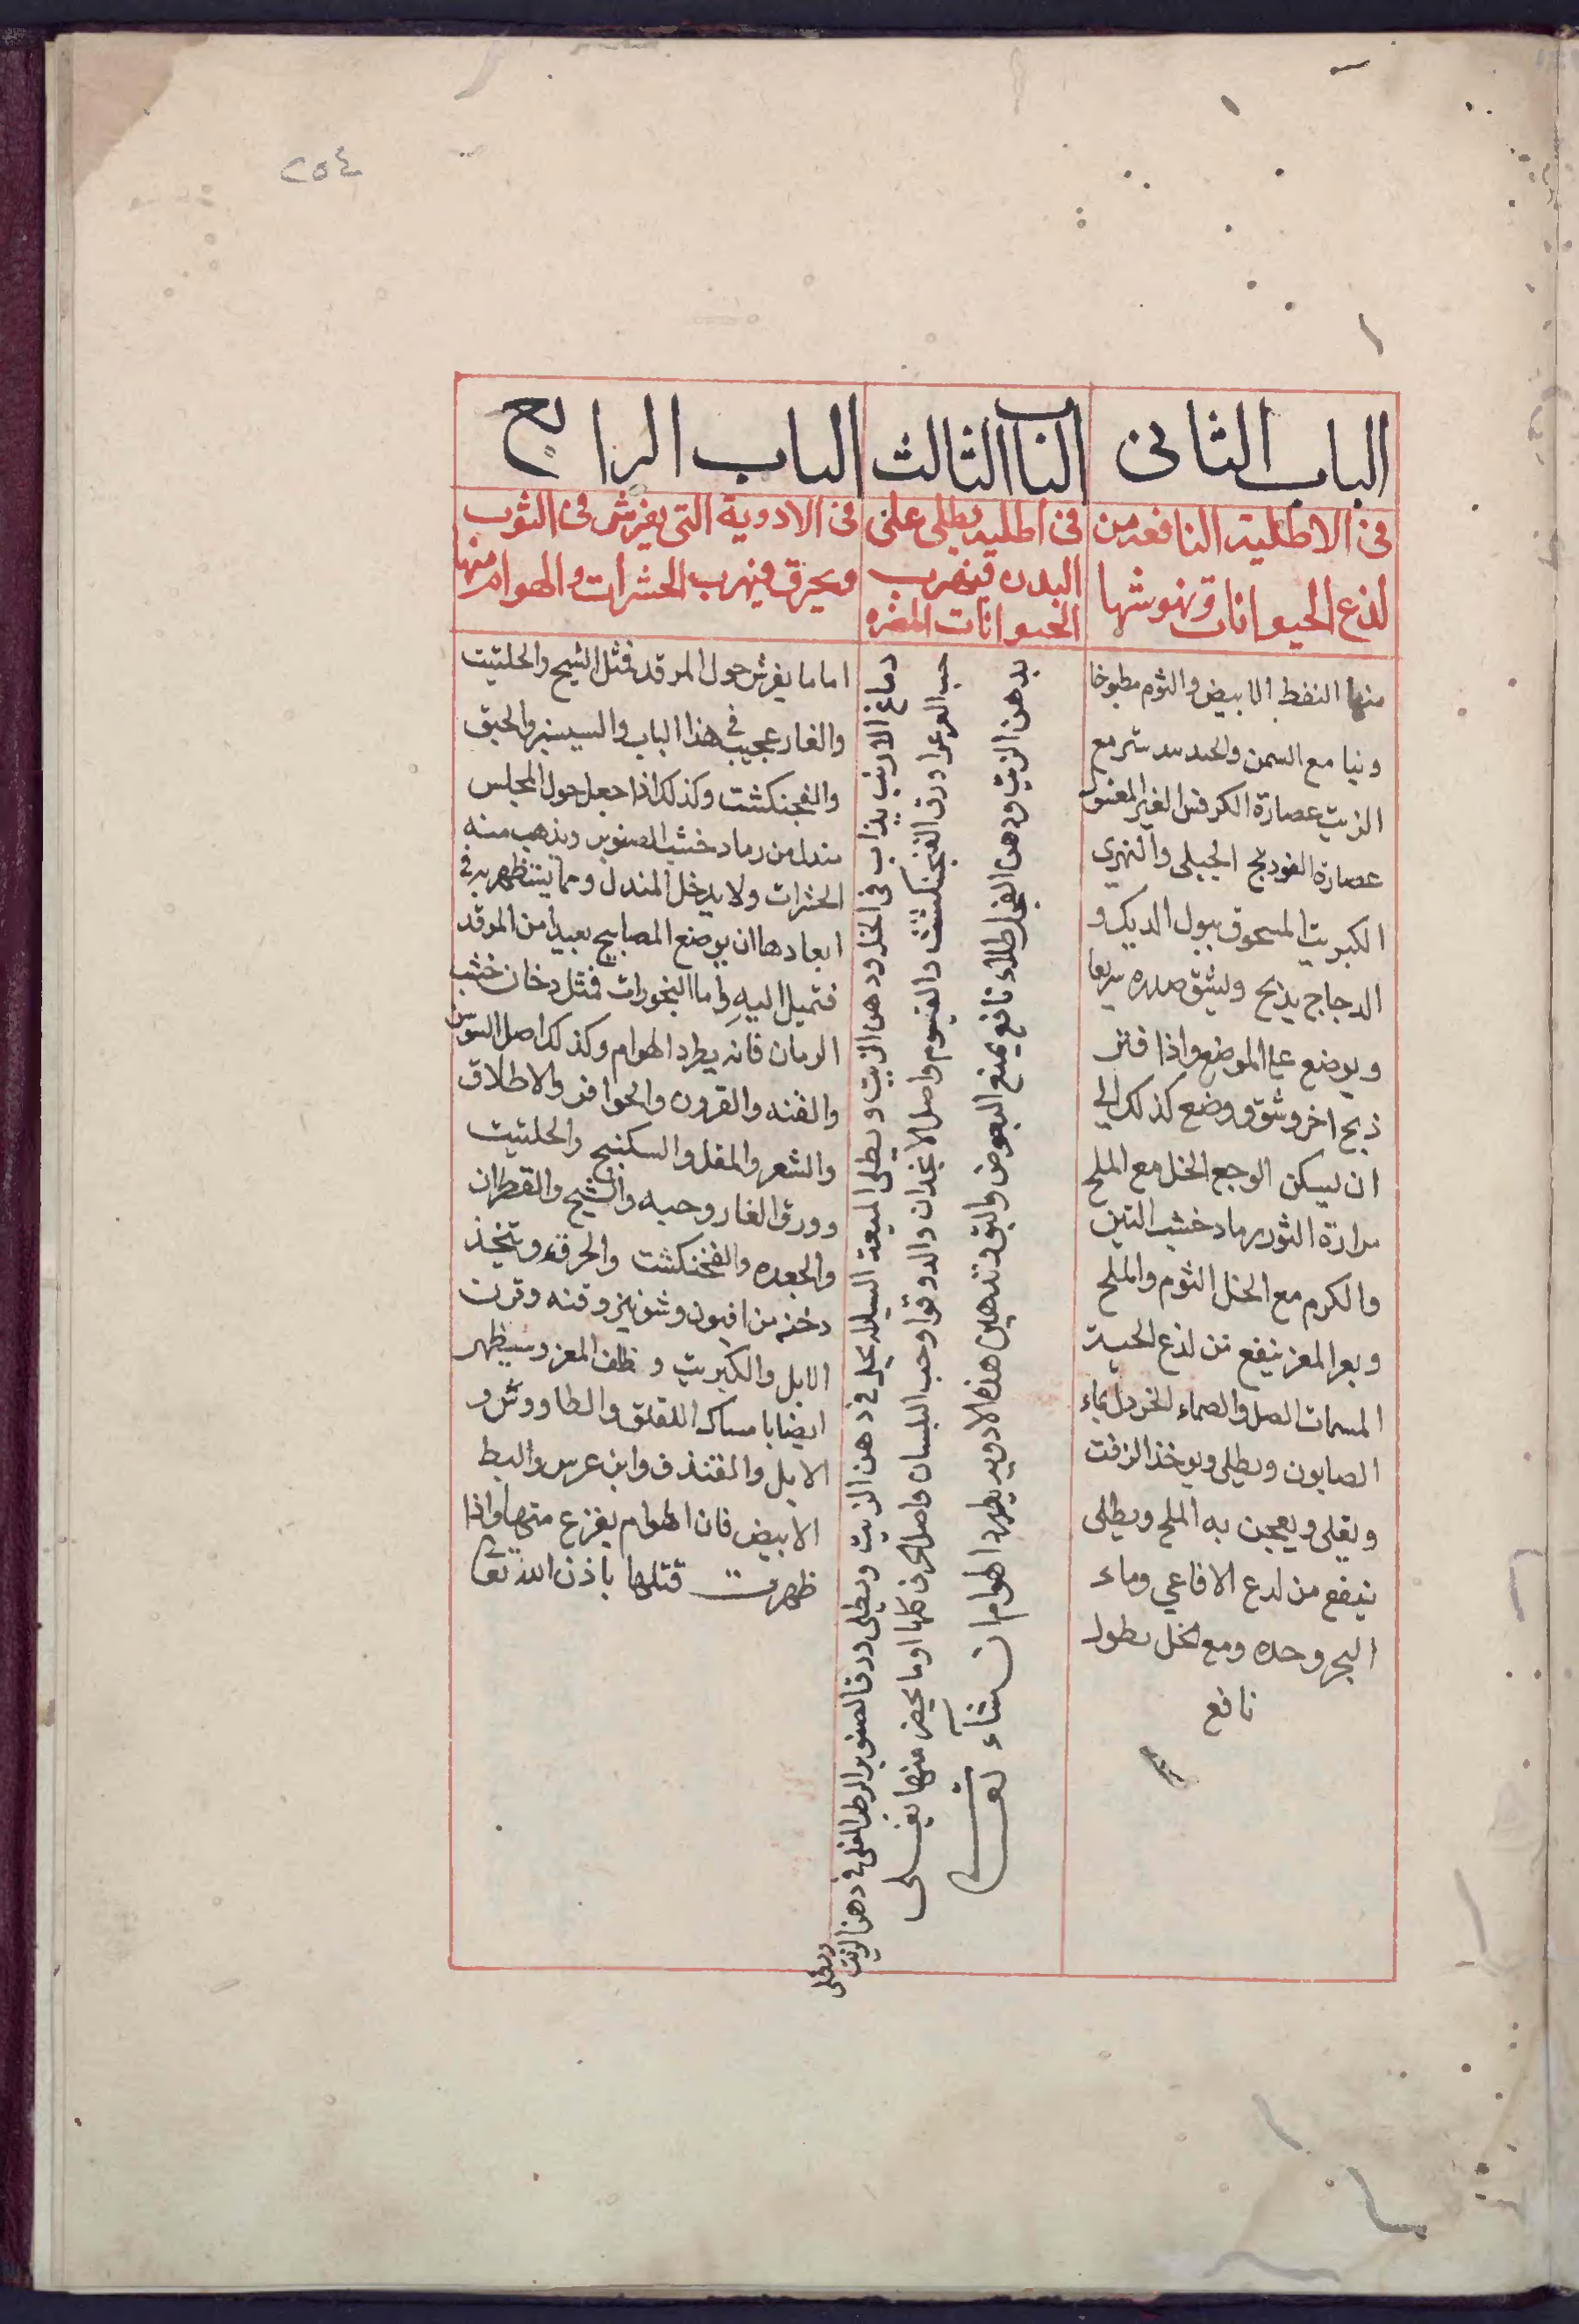 ٢٥٤
الباب الثانى
فى الاطلية النافعة من
لذع الحيوانات ونهوشها
منها النفط الابيض والثوم مطبوخا
ونيا مع السمن والجندبيدستر مع
الزيت عصارة الكرفس الغير المغسول
عصارة الفودنج الجبلى والنهري
الكبريت المسحوق ببول الديك و
الدجاج يذبح ويشق صدره سريعا
ويوضع على الموضع واذا فتر
ذبح اخر وشق ووضع كذلك الى
ان يسكن الوجع الخل مع الملح
مرارة الثور رماد خشب التين
والكرم مع الخل الثوم والملح
وبعر المعز ينفع من لذع الحية
المسمات الصل والصماء الخردل بماء
الصابون ويطلى ويوخذ الزفت
ويغلى ويعجن به الملح ويطلى
ينفع من لدع الافاعي وماء
البحر وحده ومع الخل نطولا
نافع
الباب الثالث
فى اطلية يطلى على
البدن فيهرب
الحيوانات المضره
دماغ الارنب يذاب فى الخل ودهن الزيت ويطلى الميعة السيالة يحل فى دهن الزيت ويطلى ورق الصنوبر الرطب المغلى فى دهن الزيت ويطلى
حب العرعر اورق الفنجنكشت والقيسوم واصل الانجدان والدوقوا وحب البلسان واصل الحرف كلها او ما يحضر منها يغلى
بدهن الزيت ودهن الفجل طلاء نافع يمنع البعوض والبق تدهين هذه الادوية يطرد الهوام ان شآء تعـ
الباب الرابع
فى الادوية التى يفرش فى الثوب
ويحرق فيهرب الحشرات والهوام منها
اما ما يفرش حول المرقد فمثل الشيح والحلتيت
والغار عجيب فى هذا الباب والسيسنبر والحبق
والفنجنكشت وكذلك اذا جعل حول المجلس
مندل من رماد خشب الصنوبر ويذهب منه
الحشرات ولا يدخل المندل ومما يستظهر به فى
ابعادها ان يوضع المصابيح بعيدا من المرقد
فتميل اليه واما البخورات فمثل دخان خشب
الرمان فانه يطرد الهوام وكذلك اصل السوس
والقنه والقرون والحوافر والاظلاف
والشعر والمقل والسكنبيج والحلتيت
وورق الغار وحبه والشيح والقطران
والجعده والفنجنكشت والحرقة ويتخذ
دخنه من افيون وشونيز وقنه وقرن
الايل والكبريت وظلف المعز ويستظهر
ايضا بامساك اللقلق والطاووش و
الايل والقنفذ وابن عرس والبط
الابيض فان الهوام يفزع منها واذا
ظهرت قتلها باذن الله تعا